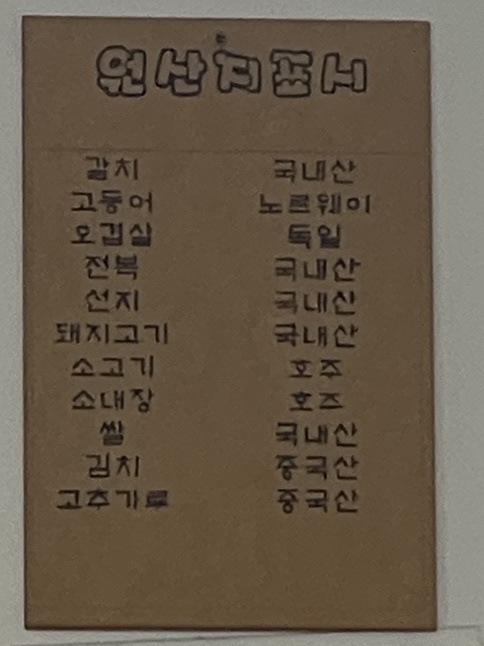 원산지표시
갈치 국내산
고등어 노르웨이
오겹살 독일
전복 국내산
선지 국내산
돼지고기 국내산
소고기 호주
소내장 호주
쌀 국내산
김치 중국산
고추가루 중국산